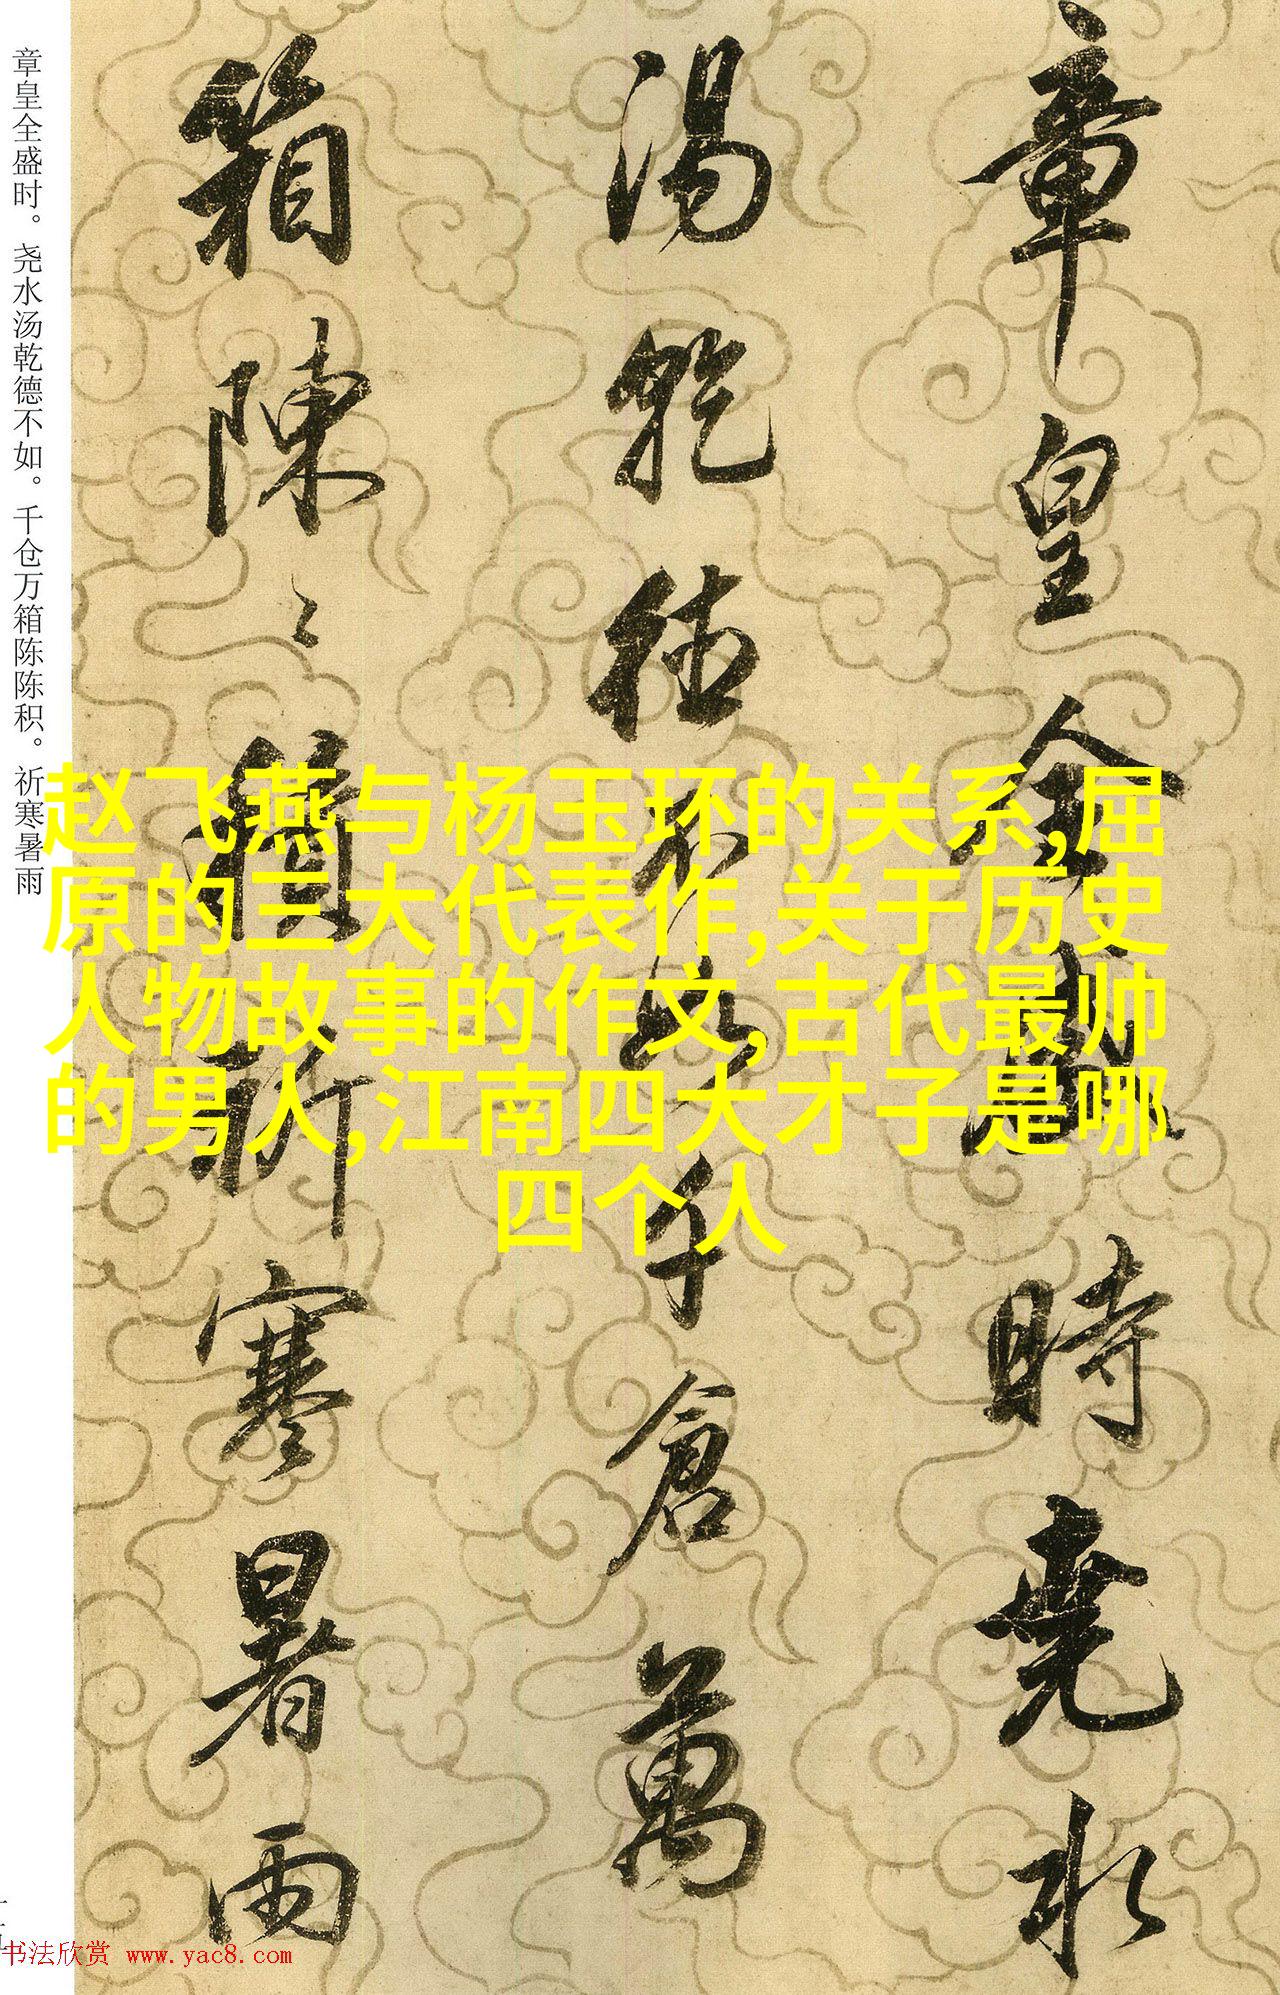 章皇全盛時堯水
湯乾德不如千倉萬
箱陳〻積祈寒暑雨
章皇全盛时。尧水汤乾德不如。千仓万箱陈陈积。祈寒暑雨
赵飞燕与杨玉环的关系,屈
原的三大代表作,关于历史
人物故事的作文,古代最帅
的男人,江南四大才子是哪
四个人
书法欣赏 www.yac8.com